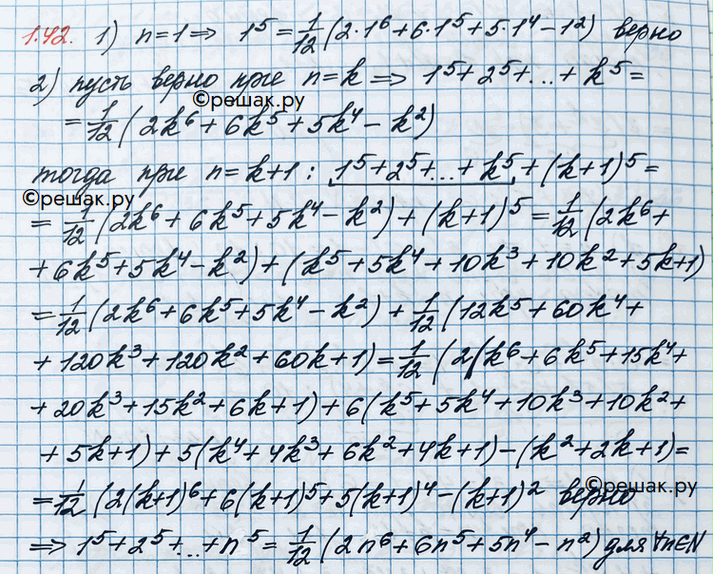 1.42. 1) n=1 ⇒ 1⁵ = 1/12 (2·1⁶+6·1⁵+5·1⁴−1²) верно
2) пусть верно при n=k ⇒ 1⁵+2⁵+...+k⁵=
©решак.ру
= 1/12 (2k⁶+6k⁵+5k⁴−k²)
тогда при n=k+1: 1⁵+2⁵+...+k⁵+(k+1)⁵=
©решак.ру
= 1/12 (2k⁶+6k⁵+5k⁴−k²)+(k+1)⁵ = 1/12 (2k⁶+
+6k⁵+5k⁴−k²)+(k⁵+5k⁴+10k³+10k²+5k+1)
= 1/12 (2k⁶+6k⁵+5k⁴−k²) + 1/12 (12k⁵+60k⁴+
+120k³+120k²+60k+1) = 1/12 (2(k⁶+6k⁵+15k⁴+
+20k³+15k²+6k+1)+6(k⁵+5k⁴+10k³+10k²+
+5k+1)+5(k⁴+4k³+6k²+4k+1)−(k²+2k+1)=
©решак.ру
= 1/12 (2(k+1)⁶+6(k+1)⁵+5(k+1)⁴−(k+1)² верно
⇒ 1⁵+2⁵+...+n⁵ = 1/12 (2n⁶+6n⁵+5n⁴−n²) для ∀n∈N